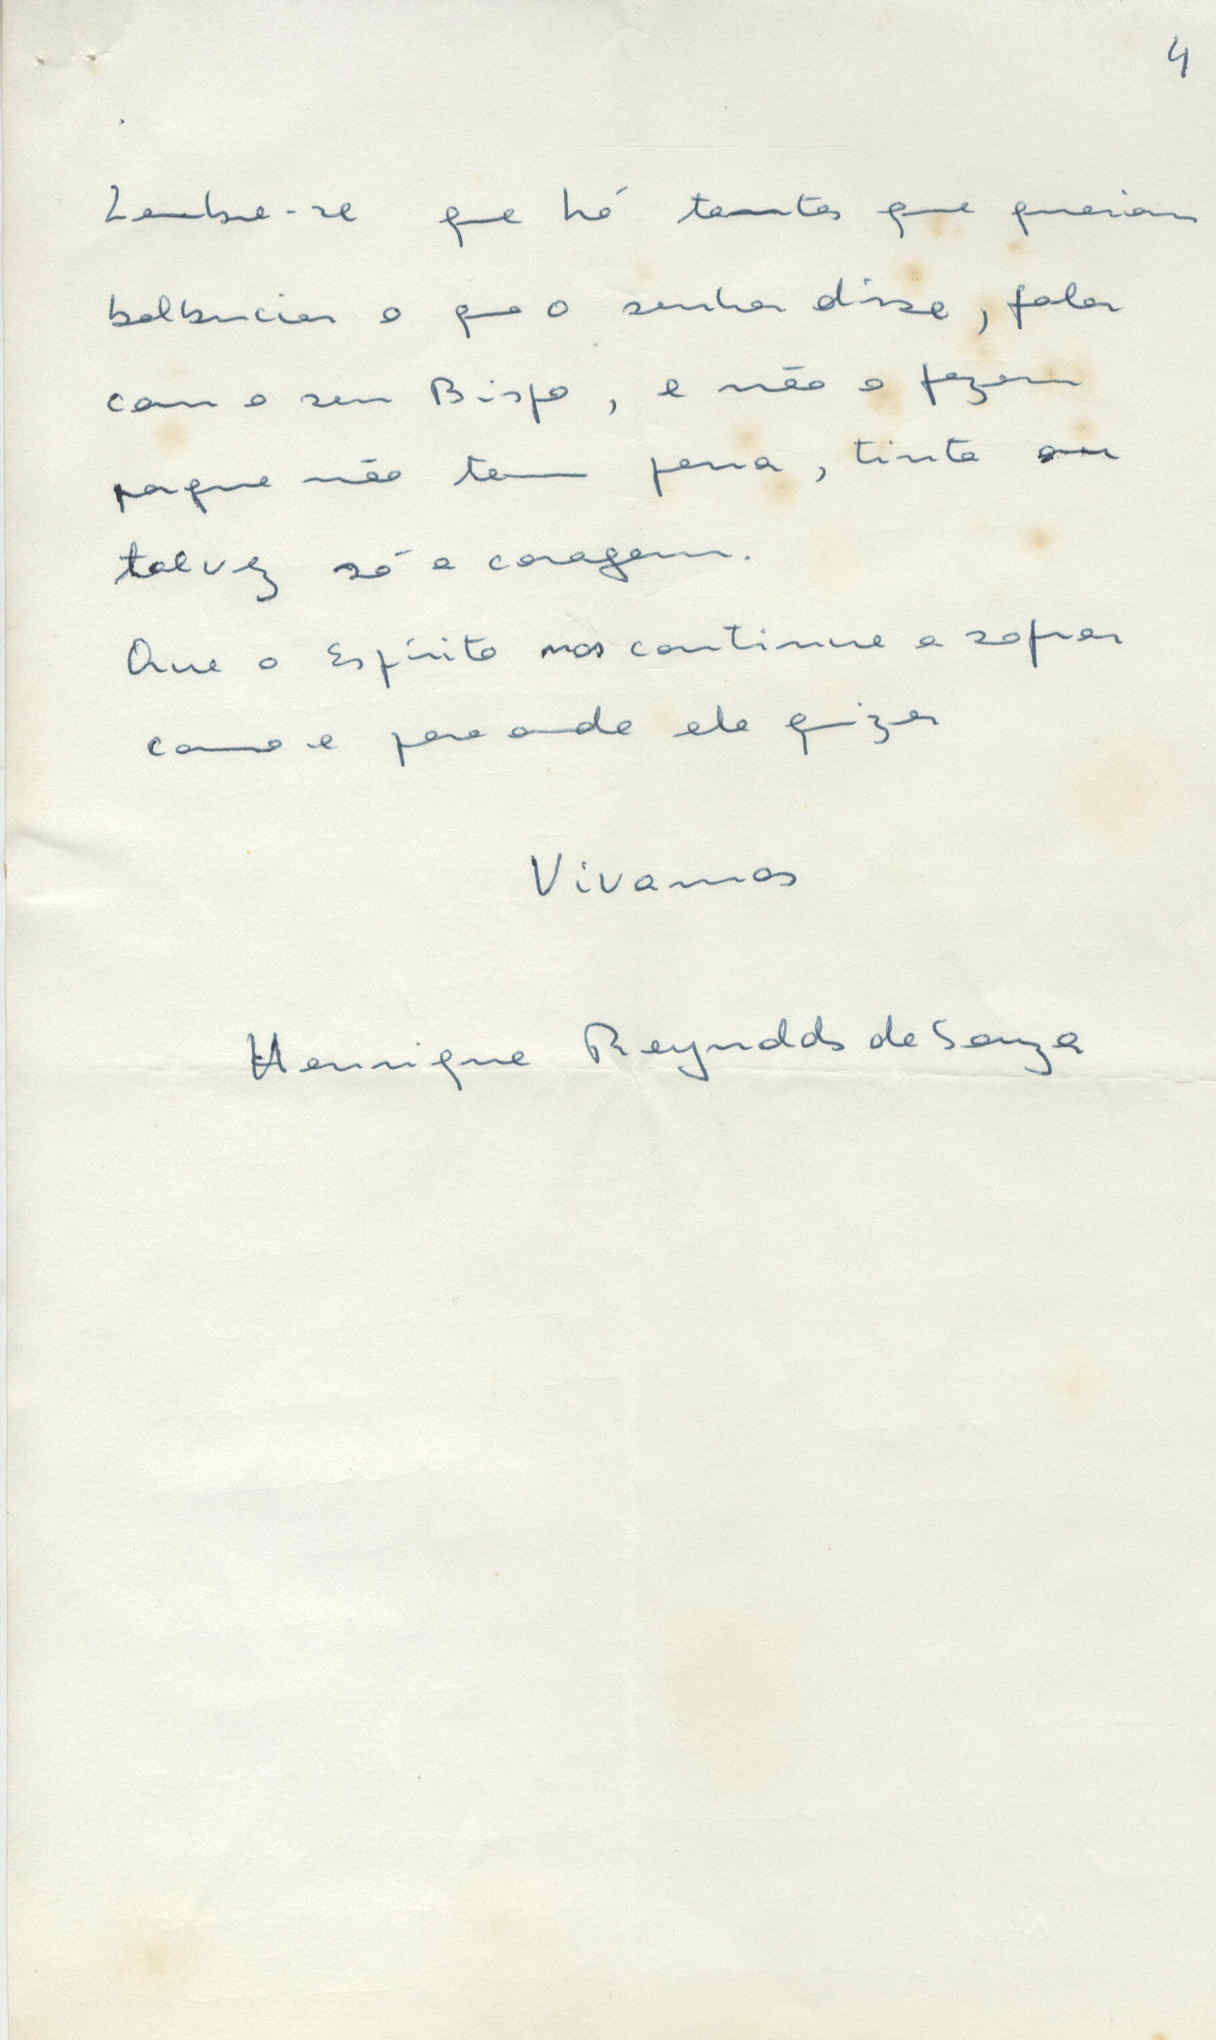 4
Lembre-se que há tantos que queriam
balbuciar o que o senhor disse, falar
com o seu Bispo, e não o fazem
porque não tem pena, tinta ou
talvez só a coragem.
Que o Espírito nos continue a soprar
como e para onde ele quizer
Vivamos
Henrique Reynolds de Souza